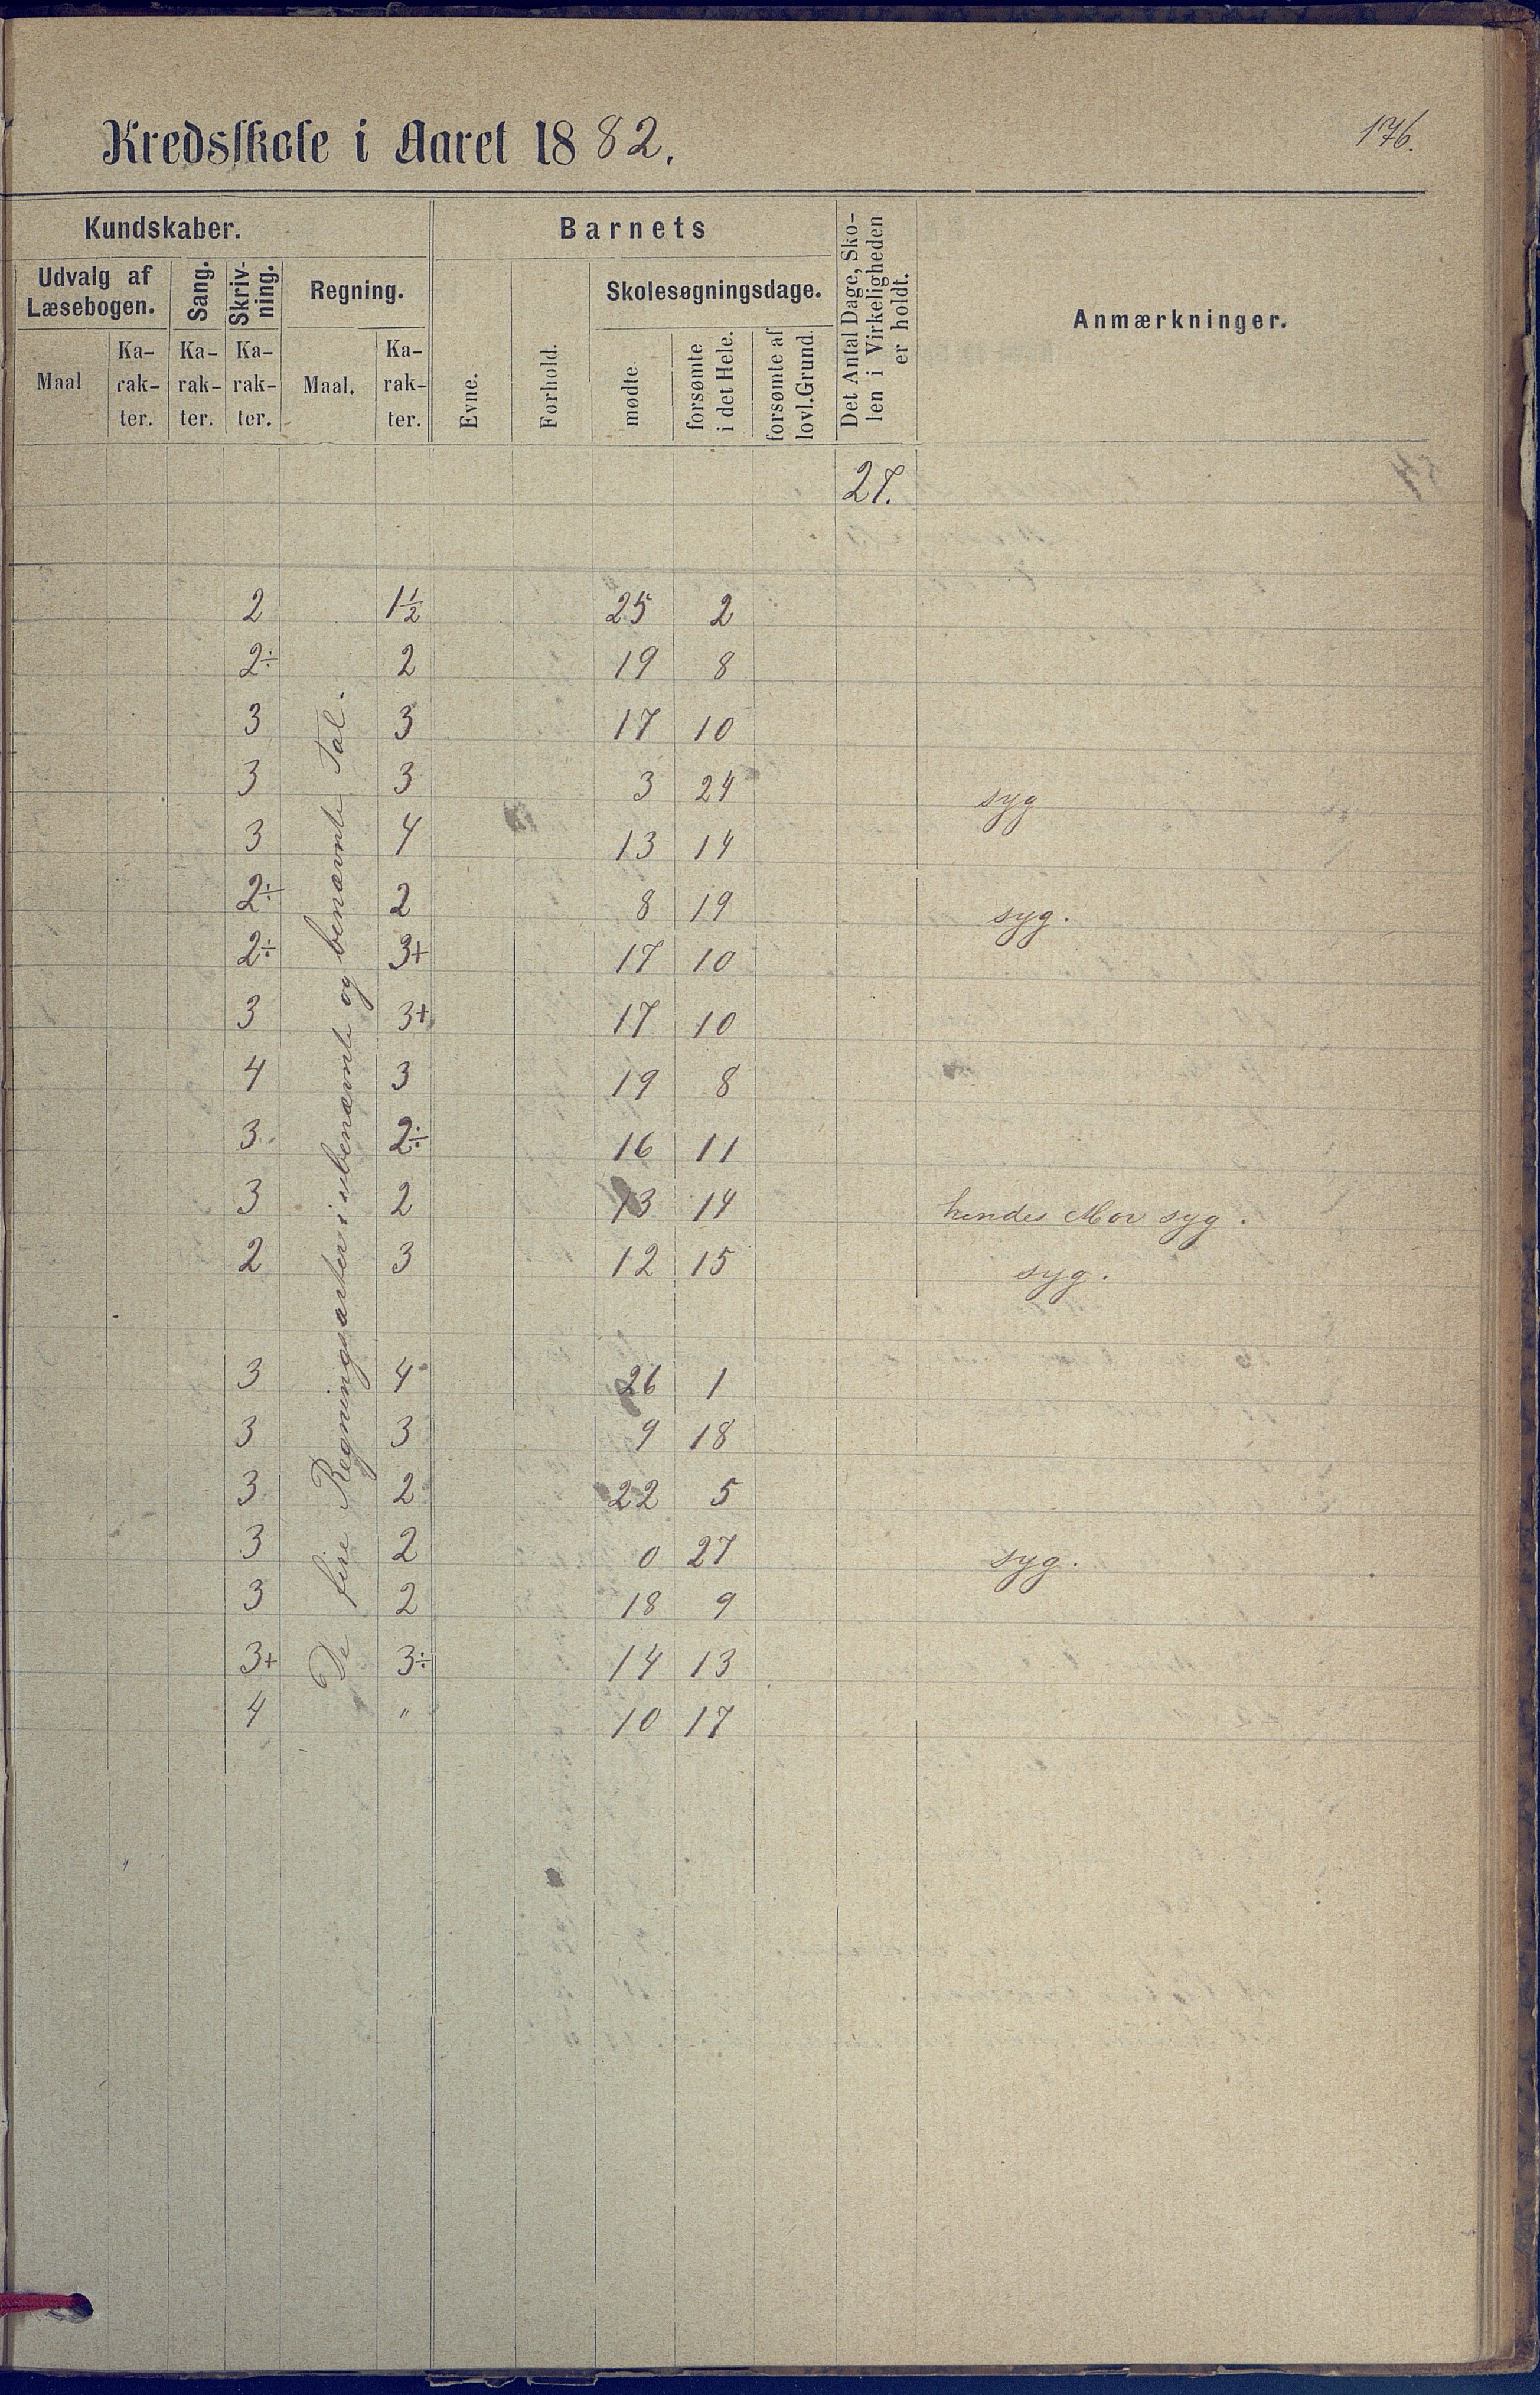 Kredsskole i Aaret 1882.
176.
Kundskaber.
Barnets
Det Antal Dage, Sko-
len i Virkeligheden
er holdt.
Anmærkninger.
Udvalg af
Læsebogen.
Sang.
Skriv-
ning.
Regning.
Skolesøgningsdage.
Maal
Ka-
rak-
ter.
Ka-
rak-
ter.
Ka-
rak-
ter.
Maal.
Ka-
rak-
ter.
Evne.
Forhold.
mødte.
forsømte
i det Hele.
forsømte af
lovl. Grund.
27.
De fire Regningsarter i ubenævnte og benævnte Tal.
2 1½ 25 2
2÷ 2 19 8
3 3 17 10
3 3 3 24 syg
3 4 13 14
2÷ 2 8 19 syg.
2÷ 3+ 17 10
3 3+ 17 10
4 3 19 8
3 2÷ 16 11
3 2 13 14 hendes Mor syg.
2 3 12 15 syg.
3 4 26 1
3 3 9 18
3 2 22 5
3 2 0 27 syg.
3 2 18 9
3+ 3÷ 14 13
4 " 10 17